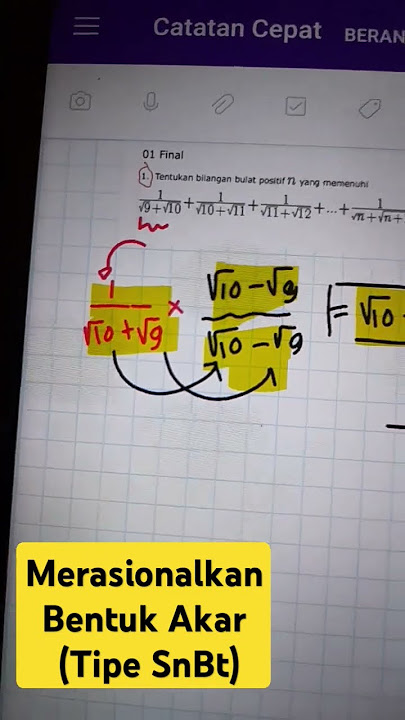 Catatan Cepat BERAN
01 Final
1. Tentukan bilangan bulat positif n yang memenuhi
1/(√9+√10) + 1/(√10+√11) + 1/(√11+√12) + ... + 1/(√n+√n+
1/(√10 + √9) × (√10 - √9)/(√10 - √9) = √10
Merasionalkan
Bentuk Akar
(Tipe SnBt)